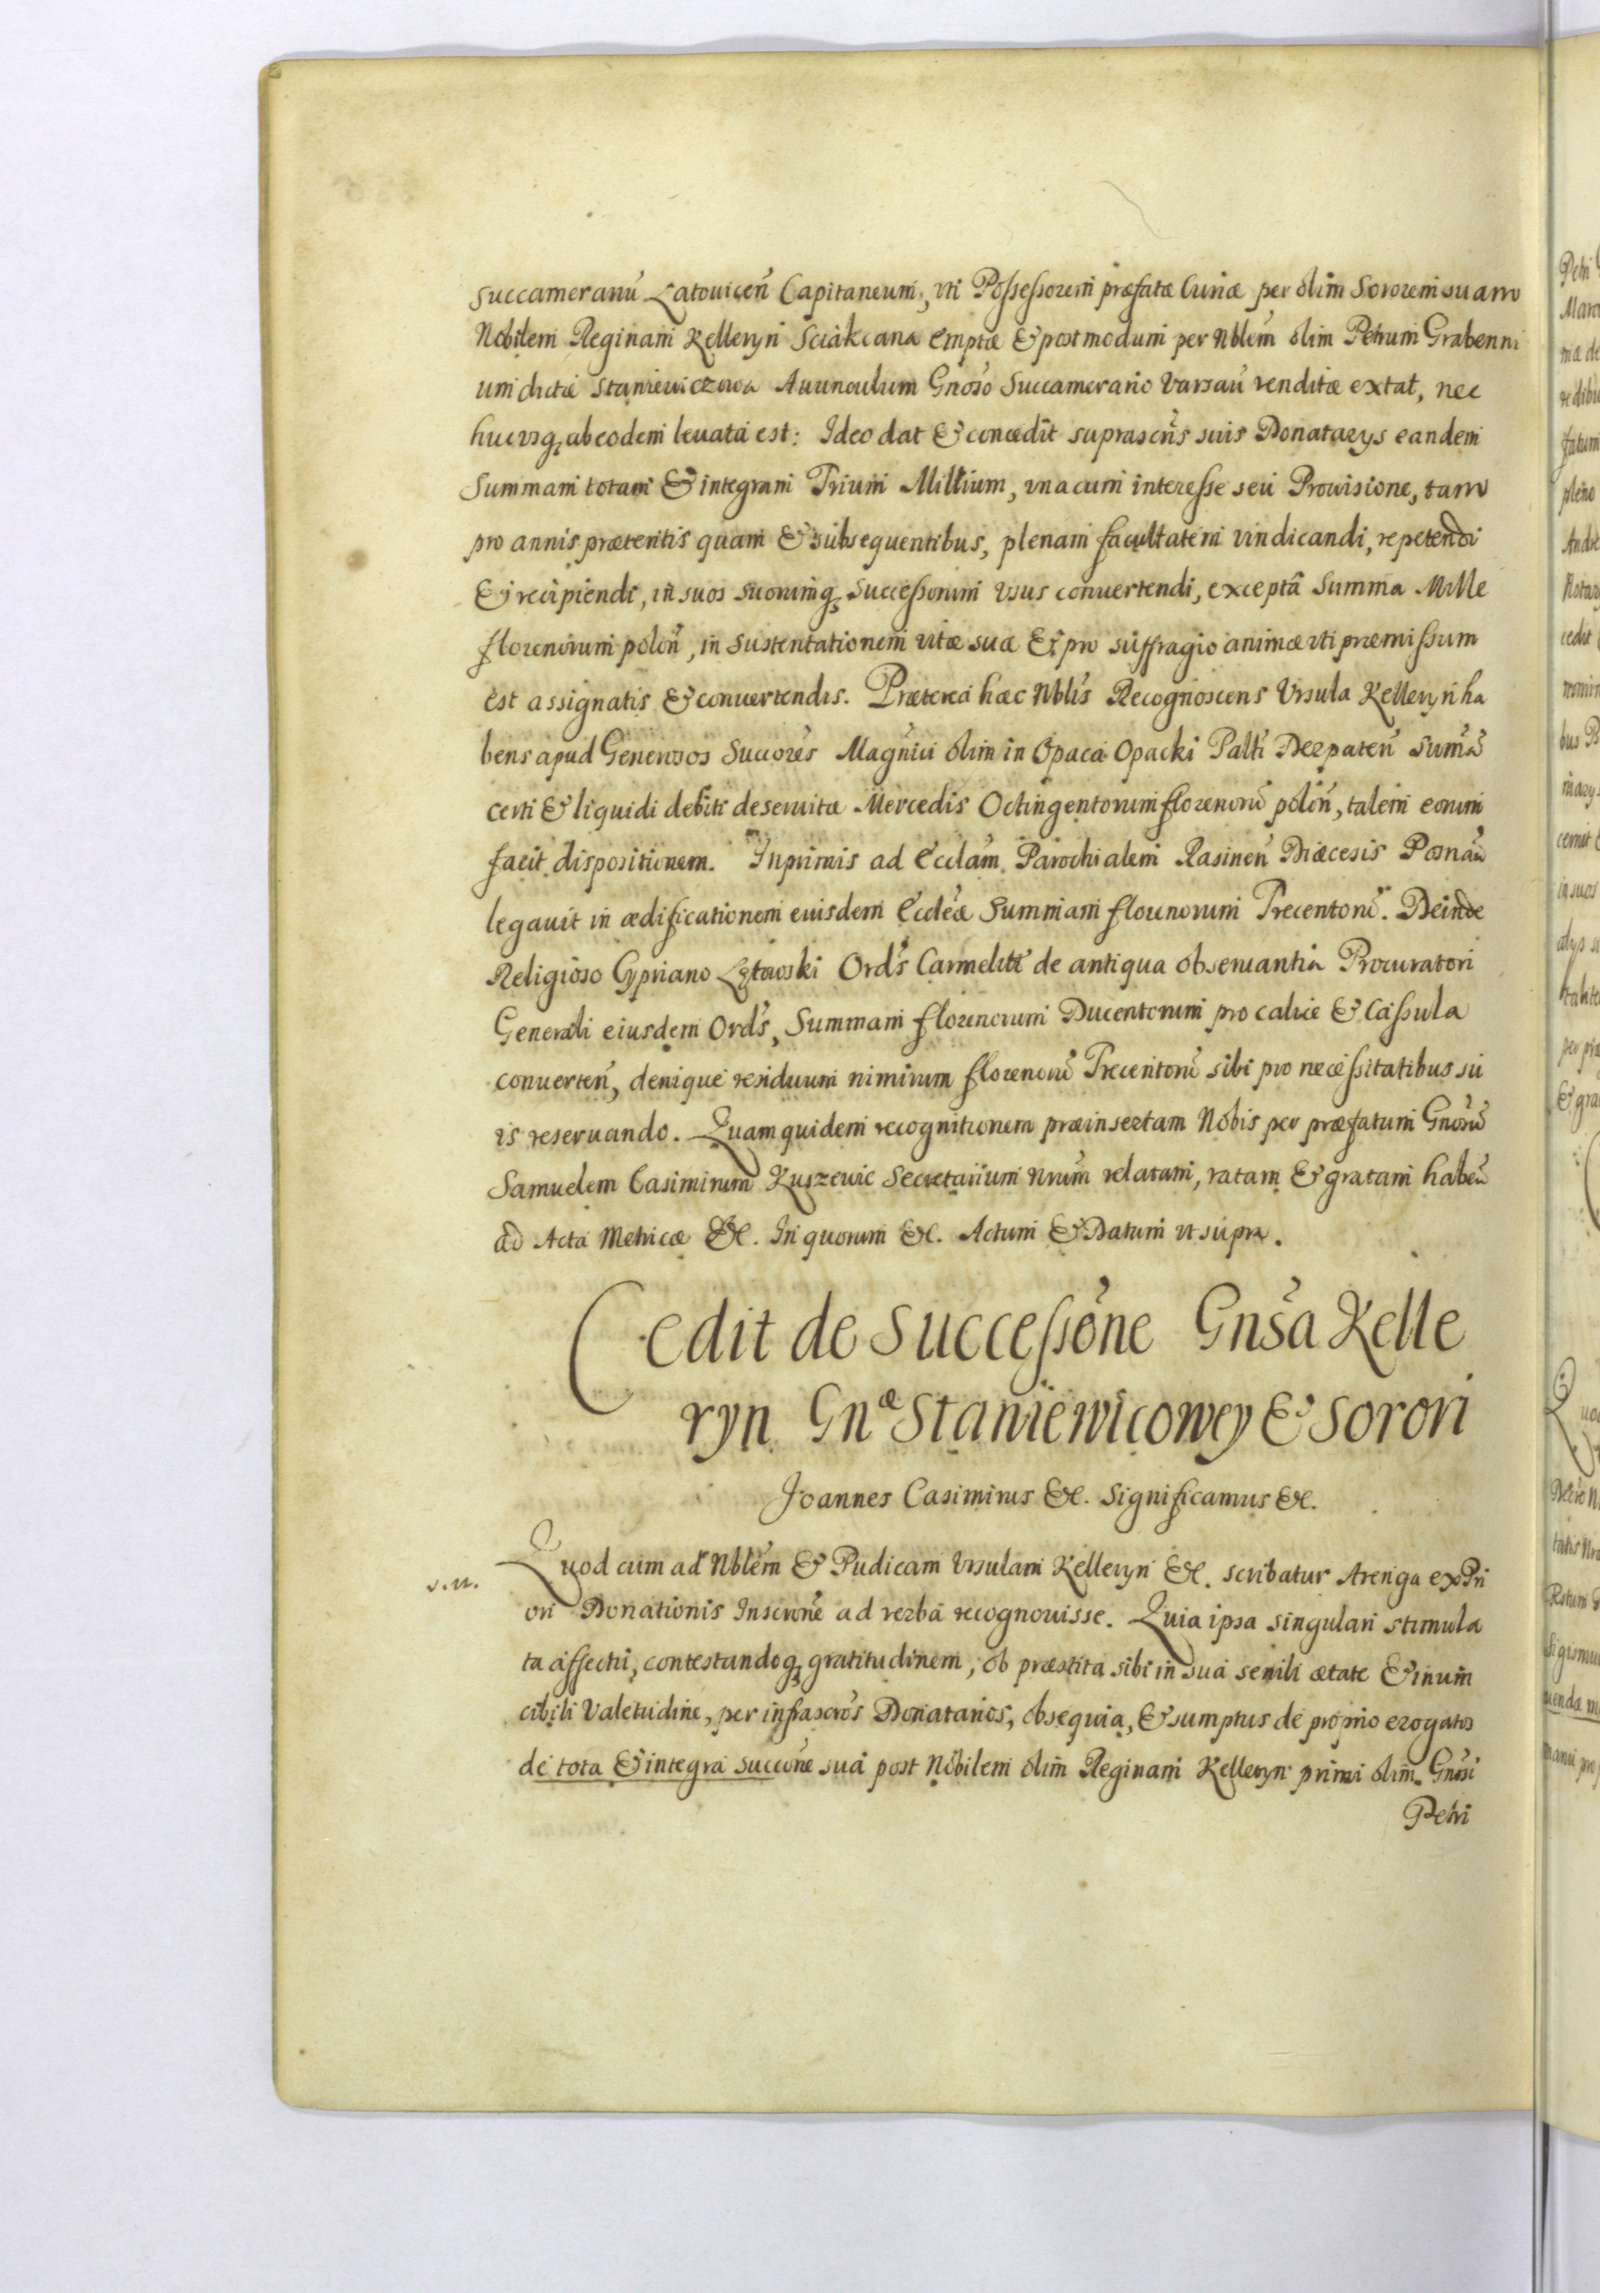 succameranū Latouiceñ Capitaneum, uti Possessorem præfatæ Curiæ per olim Sororem suam
Nobilem Reginam Kelleryn Sciakcana emptæ & postmodum per Nblem olim Petrum Grabenni
um dictæ Staniewiczowa Auunculum Gnoso Succamerario Varsau venditæ extat, nec
hucusq; ab eodem leuata est: Ideo dat & concedit suprascris suis Donatarys eandem
Summam totam & integram Trium Millium, una cum interesse seu Prouisione, tam
pro annis præteritis quam & subsequentibus, plenam facultatem vindicandi, repetendi
& recipiendi, in suos suorumq; successorum usus conuertendi, exceptâ Summa Mille
florenorum poloñ, in sustentationem vitæ suæ & pro suffragio animæ uti præmissum
est assignatis & conuertendis. Præterea hæc Nblis Recognoscens Ursula Kelleryn ha
bens apud Generosos Succores Magnici olim in Opaca Opacki Palti Derpateñ Summā
certi & liquidi debiti deseruitæ Mercedis Octingentorum florenorū poloñ, talem eorum
facit dispositionem. Inprimis ad Ecclam Parochialem Rasineñ Diæcesis Posnāñ
legauit in ædificationem eiusdem Eccleæ Summam florenorum Trecentorū. Deinde
Religioso Cypriano Ord̃s Carmelitæ de antiqua obseruantia Procuratori
Generali eiusdem Ord̃s, Summam florenorum Ducentorum pro calice & Cassula
conuerteñ, denique residuum nimirum florenorū Trecentorū sibi pro necessitatibus su
is reseruando. Quam quidem recognitionem præinsertam Nobis per præfatum Gnosū
Samuelem Casimirum Kuszewic Secretarium Nrum relatam, ratam & gratam habeñ
ad Acta Metricæ &c. In quorum &c. Actum & Datum ut supra.
Cedit de Successōne Gnsa Kelle
ryn Gnæ Staniewicowey & Sorori
Joannes Casimirus &c. Significamus &c.
v. n.
Quod cum ad Nblem & Pudicam Ursulam Kelleryn &c. scribatur Arenga ex Pri
ori Donationis Inscrōne ad verba recognouisse. Quia ipsa singulari stimula
ta affectu, contestandoq; gratitudinem, ob præstita sibi in sua senili ætate & inuin
cibili Valetudine, per infrascros Donatarios, obsequia, & sumptus de proprio erogatos
de tota & integra succōne sua post Nobilem olim Reginam Kelleryn primi olim Gnosi
Petri